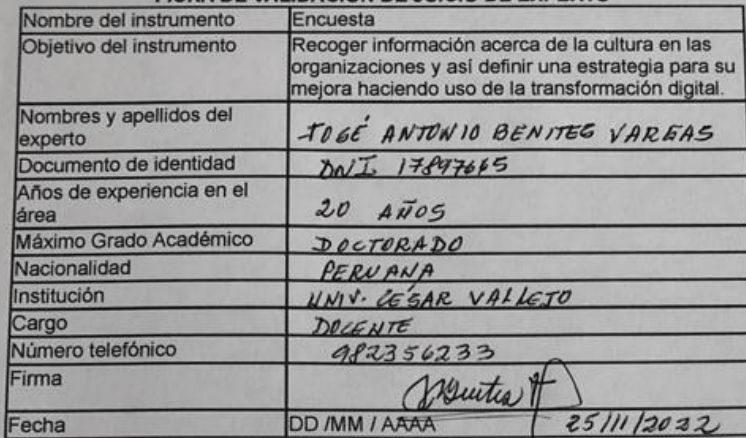 FICHA DE VALIDACIÓN DE JUICIO DE EXPERTO
Nombre del instrumento Encuesta
Objetivo del instrumento Recoger información acerca de la cultura en las
organizaciones y así definir una estrategia para su
mejora haciendo uso de la transformación digital.
Nombres y apellidos del
experto JOSÉ ANTONIO BENITES VARGAS
Documento de identidad DNI 17897665
Años de experiencia en el
área 20 AÑOS
Máximo Grado Académico DOCTORADO
Nacionalidad PERUANA
Institución UNIV. CÉSAR VALLEJO
Cargo DOCENTE
Número telefónico 982356233
Firma
Fecha DD /MM / AAAA 25/11/2022